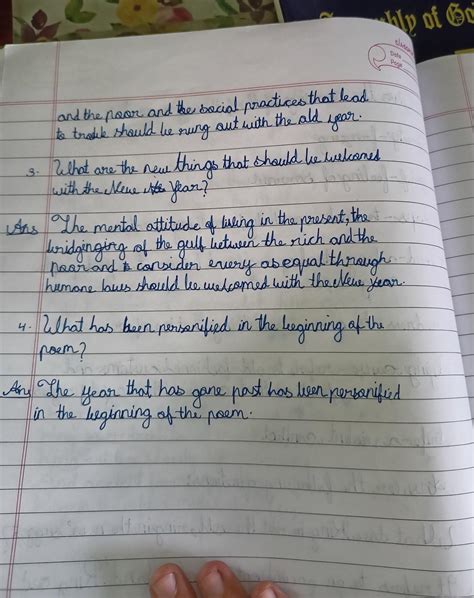 of Go
Date
Page
and the poor and the social practices that lead
to trouble should be rung out with the old year.
3. What are the new things that should be welcomed
with the New Year?
Ans The mental attitude of living in the present, the
bridginging of the gulf between the rich and the
poor and to consider every as equal through
humane laws should be welcomed with the New Year.
4. What has been personified in the beginning of the
poem?
Ans The year that has gone past has been personified
in the beginning of the poem.